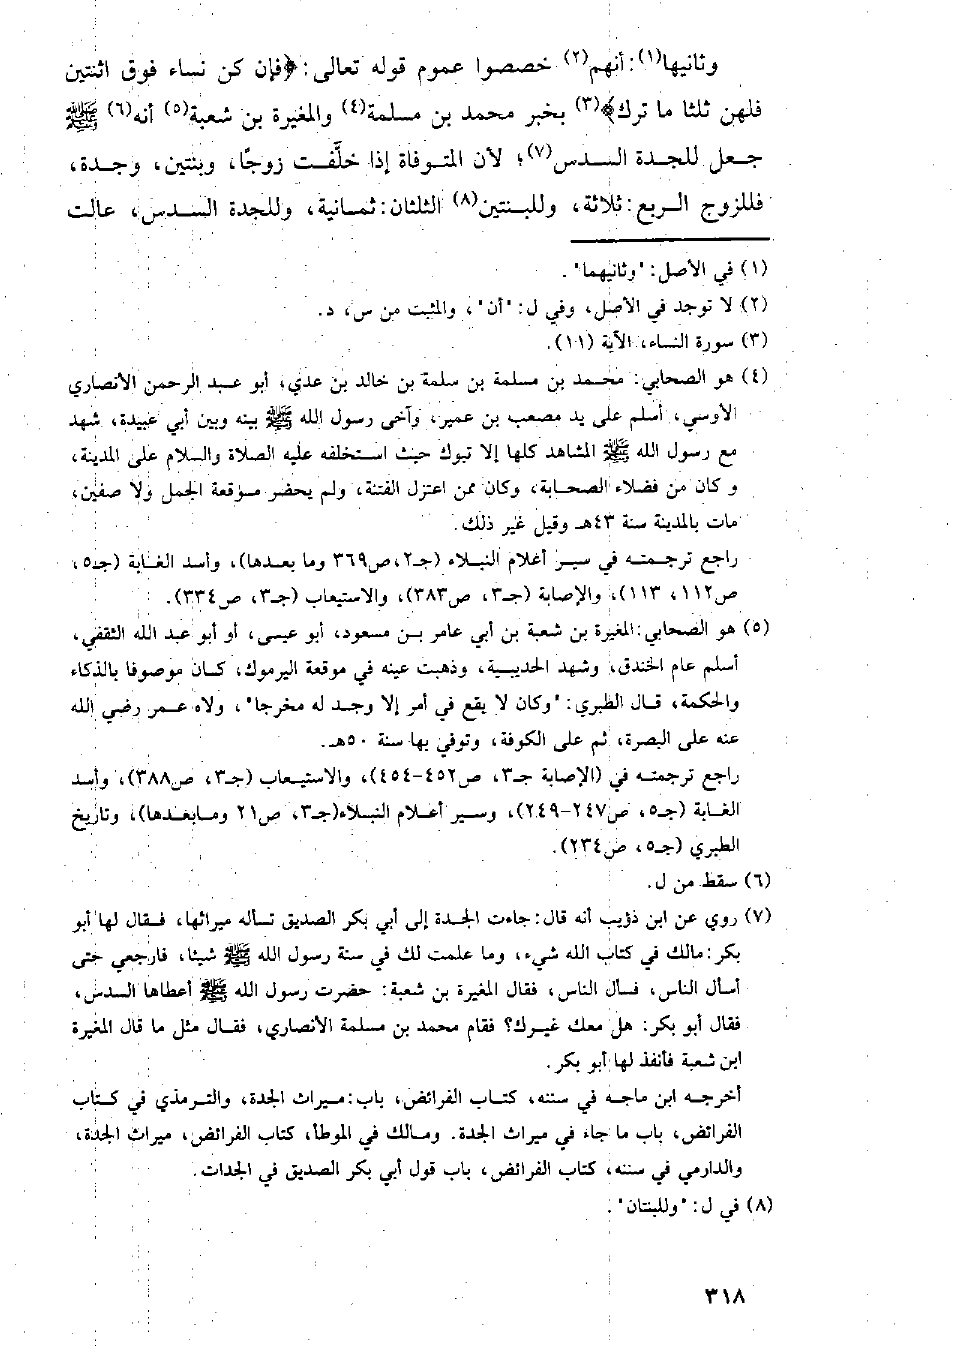 وثانيها(١): أنهم(٢) خصصوا عموم قوله تعالى: ﴿فإن كن نساء فوق اثنتين
فلهن ثلثا ما ترك﴾(٣) بخبر محمد بن مسلمة(٤) والمغيرة بن شعبة(٥) أنه(٦) ﷺ
جعل للجدة السدس(٧)؛ لأن المتوفاة إذا خلَّفت زوجًا، وبنتين، وجدة،
فللزوج الربع: ثلاثة، وللبنتين(٨) الثلثان: ثمانية، وللجدة السدس، عالت
(١) في الأصل: "وثانيهما".
(٢) لا توجد في الأصل، وفي ل: "أن"، والمثبت من س، د.
(٣) سورة النساء، الآية (١١).
(٤) هو الصحابي: محمد بن مسلمة بن سلمة بن خالد بن عدي، أبو عبد الرحمن الأنصاري
الأوسي، أسلم على يد مصعب بن عمير، وآخى رسول الله ﷺ بينه وبين أبي عبيدة، شهد
مع رسول الله ﷺ المشاهد كلها إلا تبوك حيث استخلفه عليه الصلاة والسلام على المدينة،
وكان من فضلاء الصحابة، وكان ممن اعتزل الفتنة، ولم يحضر موقعة الجمل ولا صفين،
مات بالمدينة سنة ٤٣هـ وقيل غير ذلك.
راجع ترجمته في سير أعلام النبلاء (جـ٢، ص٣٦٩ وما بعدها)، وأسد الغابة (جـ٥،
ص١١٢، ١١٣)، والإصابة (جـ٣، ص٣٨٣)، والاستيعاب (جـ٣، ص٣٣٤).
(٥) هو الصحابي: المغيرة بن شعبة بن أبي عامر بن مسعود، أبو عيسى، أو أبو عبد الله الثقفي،
أسلم عام الخندق، وشهد الحديبية، وذهبت عينه في موقعة اليرموك، كان موصوفا بالذكاء
والحكمة، قال الطبري: "وكان لا يقع في أمر إلا وجد له مخرجا"، ولاه عمر رضي الله
عنه على البصرة، ثم على الكوفة، وتوفي بها سنة ٥٠هـ.
راجع ترجمته في (الإصابة جـ٣، ص٤٥٢-٤٥٤)، والاستيعاب (جـ٣، ص٣٨٨)، وأسد
الغابة (جـ٥، ص٢٤٧-٢٤٩)، وسير أعلام النبلاء(جـ٣، ص٢١ ومابعدها)، وتاريخ
الطبري (جـ٥، ص٢٣٤).
(٦) سقط من ل.
(٧) روي عن ابن ذؤيب أنه قال: جاءت الجدة إلى أبي بكر الصديق تسأله ميراثها، فقال لها أبو
بكر: مالك في كتاب الله شيء، وما علمت لك في سنة رسول الله ﷺ شيئا، فارجعي حتى
أسأل الناس، فسأل الناس، فقال المغيرة بن شعبة: حضرت رسول الله ﷺ أعطاها السدس،
فقال أبو بكر: هل معك غيرك؟ فقام محمد بن مسلمة الأنصاري، فقال مثل ما قال المغيرة
ابن شعبة فأنفذ لها أبو بكر.
أخرجه ابن ماجه في سننه، كتاب الفرائض، باب: ميراث الجدة، والترمذي في كتاب
الفرائض، باب ما جاء في ميراث الجدة. ومالك في الموطأ، كتاب الفرائض، ميراث الجدة،
والدارمي في سننه، كتاب الفرائض، باب قول أبي بكر الصديق في الجدات.
(٨) في ل: "وللبنتان".
٣١٨